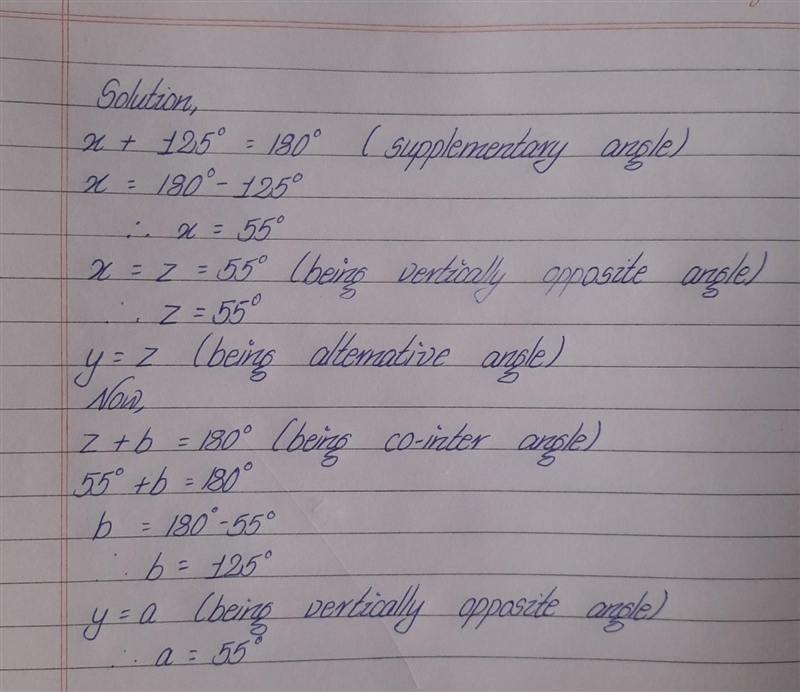 Solution,
x + 125° = 180° (supplementary angle)
x = 180° - 125°
∴ x = 55°
x = z = 55° (being vertically opposite angle)
∴ z = 55°
y = z (being alternative angle)
Now,
z + b = 180° (being co-inter angle)
55° + b = 180°
b = 180° - 55°
∴ b = 125°
y = a (being vertically opposite angle)
∴ a = 55°